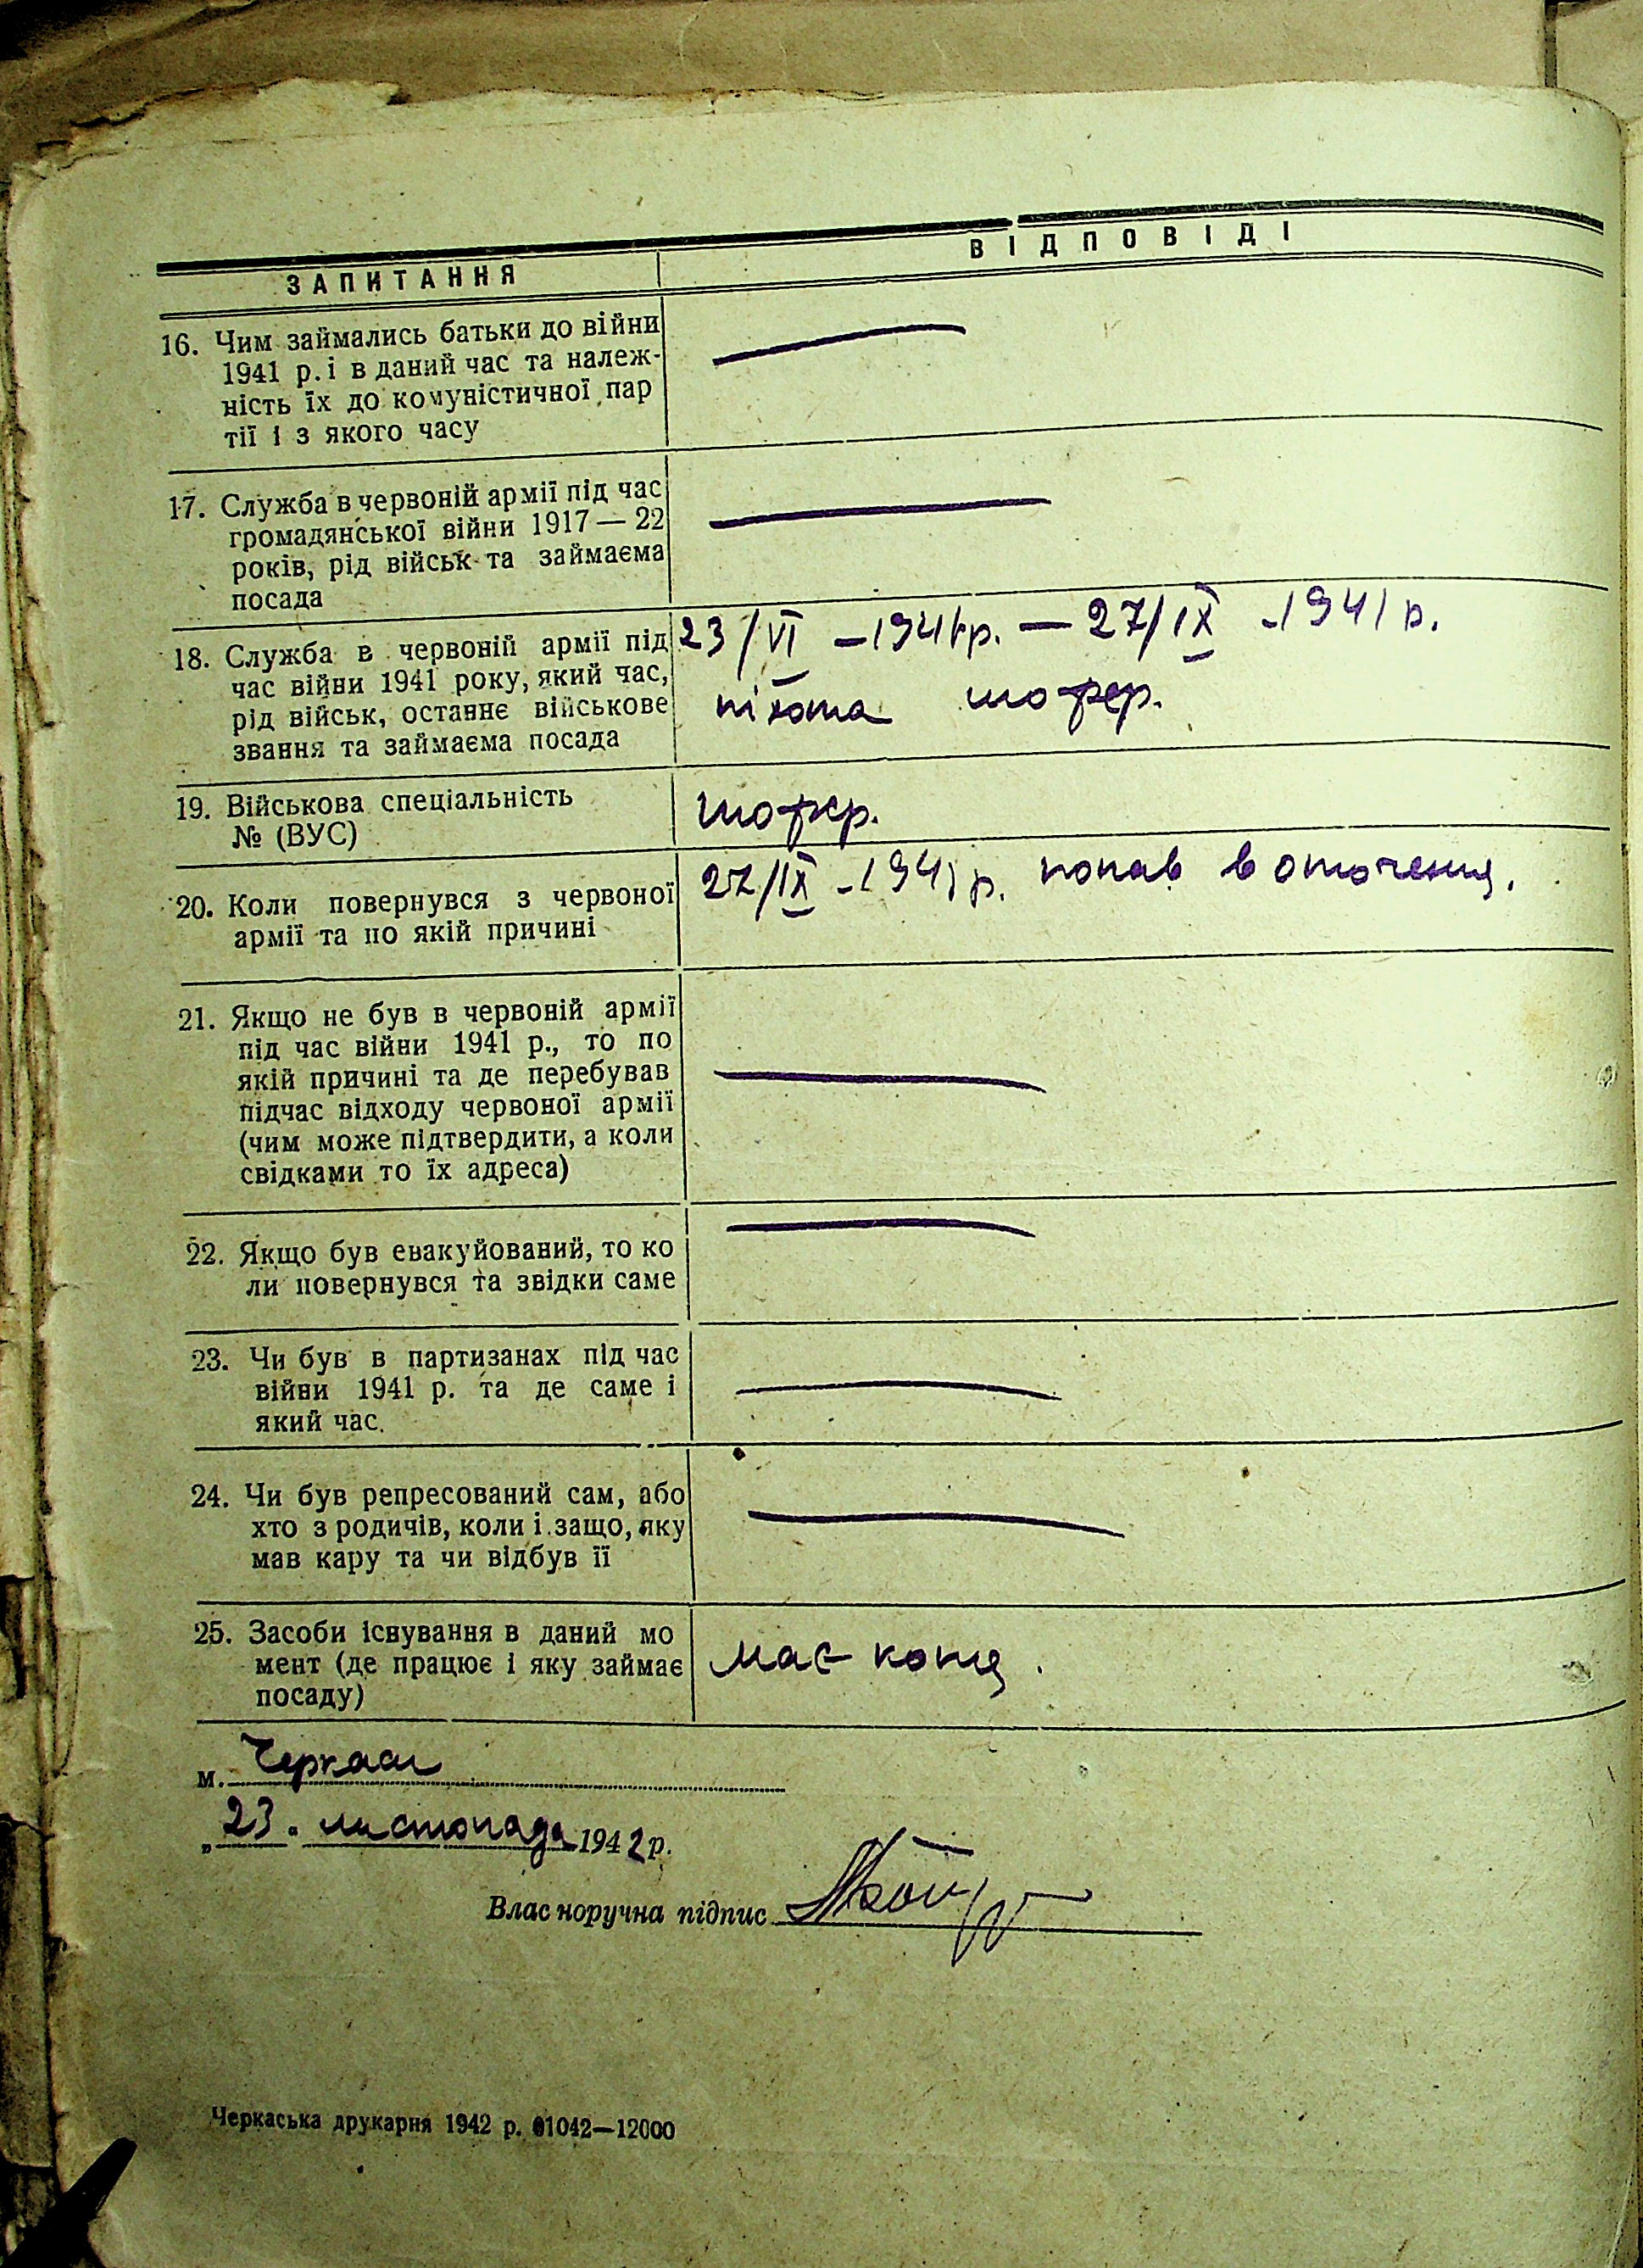 ЗАПИТАННЯ
ВІДПОВІДІ
16. Чим займались батьки до війни
1941 р. і в даний час та належ-
ність їх до комуністичної пар
тії і з якого часу
17. Служба в червоній армії під час
громадянської війни 1917 — 22
років, рід військ та займаєма
посада
18. Служба в червоній армії під
час війни 1941 року, який час,
рід військ, останнє військове
звання та займаєма посада
23/VI – 1941 р. — 27/IX - 1941 р.
піхота шофер.
19. Військова спеціальність
№ (ВУС)
шофер.
20. Коли повернувся з червоної
армії та по якій причині
27/IX - 1941 р. попав в оточення.
21. Якщо не був в червоній армії
під час війни 1941 р., то по
якій причині та де перебував
підчас відходу червоної армії
(чим може підтвердити, а коли
свідками то їх адреса)
22. Якщо був евакуйований, то ко
ли повернувся та звідки саме
23. Чи був в партизанах під час
війни 1941 р. та де саме і
який час.
24. Чи був репресований сам, або
хто з родичів, коли і защо, яку
мав кару та чи відбув її
25. Засоби існування в даний мо
мент (де працює і яку займає
посаду)
має коня.
м. Черкаси
„23" листопада 1942 р.
Власноручна підпис
Черкаська друкарня 1942 р. 01042—12000